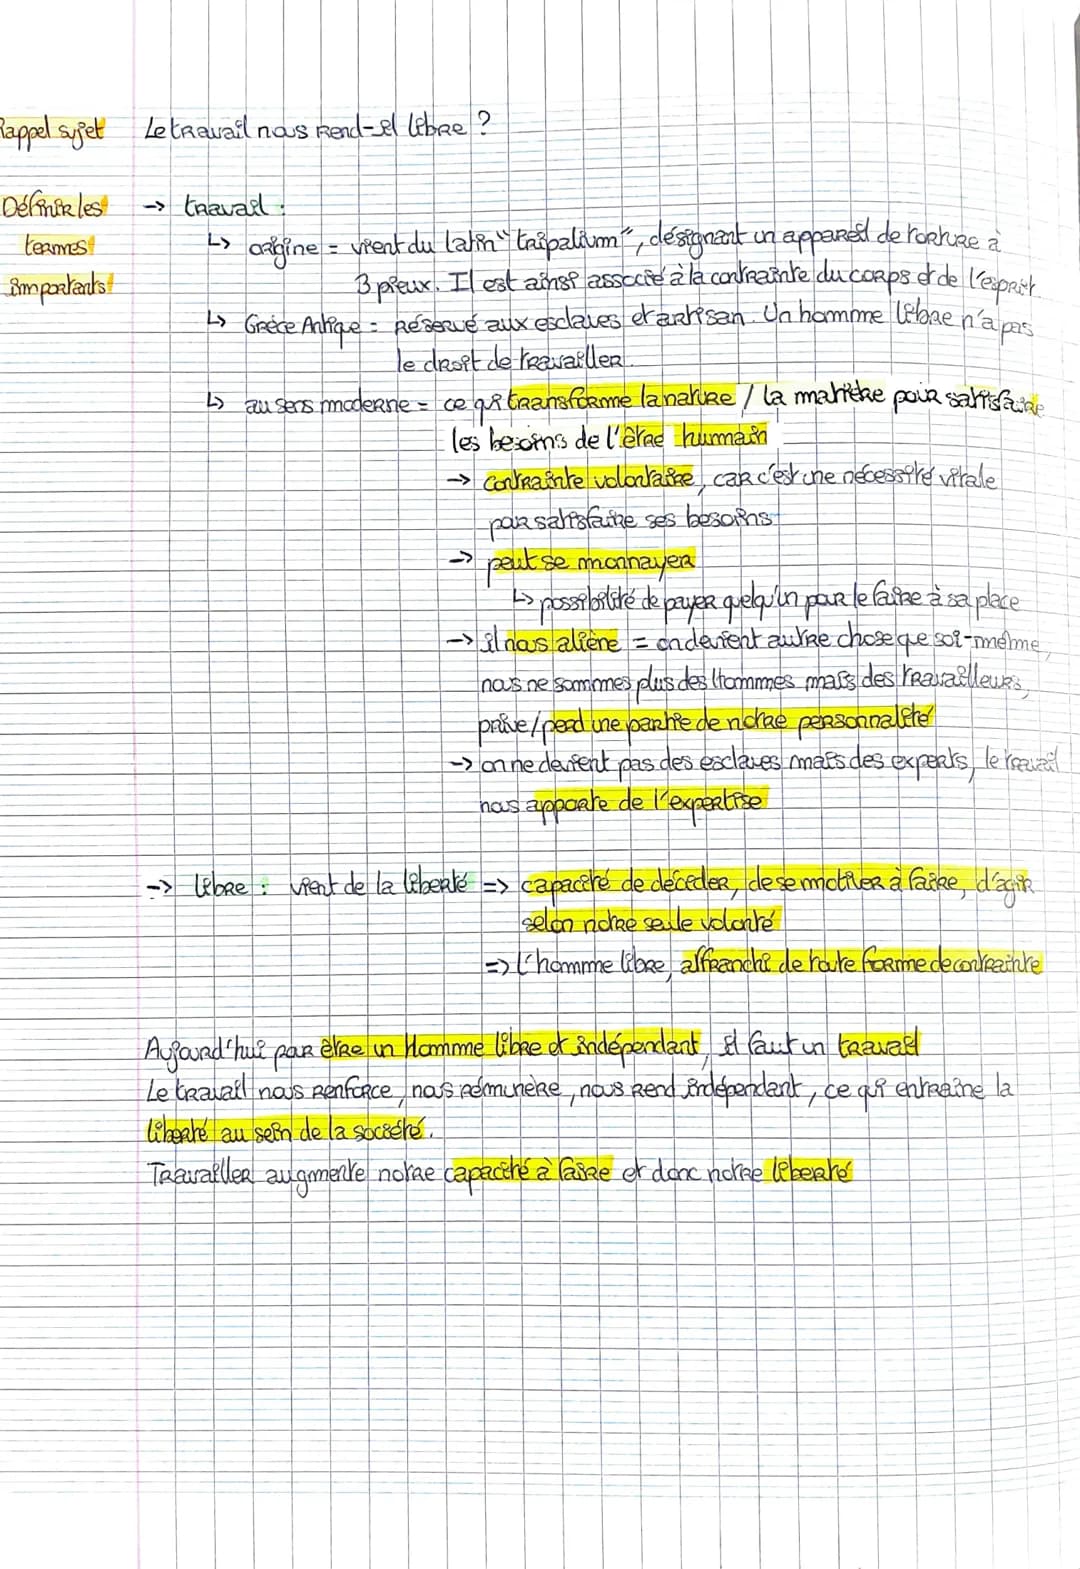 Rappel sujet Le travail nous rend-il libre ?
Définir les → travail :
termes ↳ origine = vient du latin "tripalium", désignant un appareil de torture à
importants 3 pieux. Il est ainsi associé à la contrainte du corps et de l'esprit.
↳ Grèce Antique = réservé aux esclaves et artisan. Un homme libre n'a pas
le droit de travailler.
↳ au sens moderne = ce qui transforme la nature / la matière pour satisfaire
les besoins de l'être humain
→ contrainte volontaire, car c'est une nécessité vitale
pour satisfaire ses besoins
→ peut se monnayer
↳ possibilité de payer quelqu'un pour le faire à sa place
→ il nous aliène = on devient autre chose que soi-même,
nous ne sommes plus des Hommes mais des travailleurs,
prive/perd une partie de notre personnalité
→ on ne devient pas des esclaves mais des experts, le travail
nous apporte de l'expertise
→ libre : vient de la liberté => capacité de décider, de se motiver à faire, d'agir
selon notre seule volonté
=> l'homme libre, affranchi de toute forme de contrainte
Aujourd'hui pour être un Homme libre et indépendant, il faut un travail
Le travail nous renforce, nous rémunère, nous rend indépendant, ce qui entraine la
liberté au sein de la société.
Travailler augmente notre capacité à faire et donc notre liberté